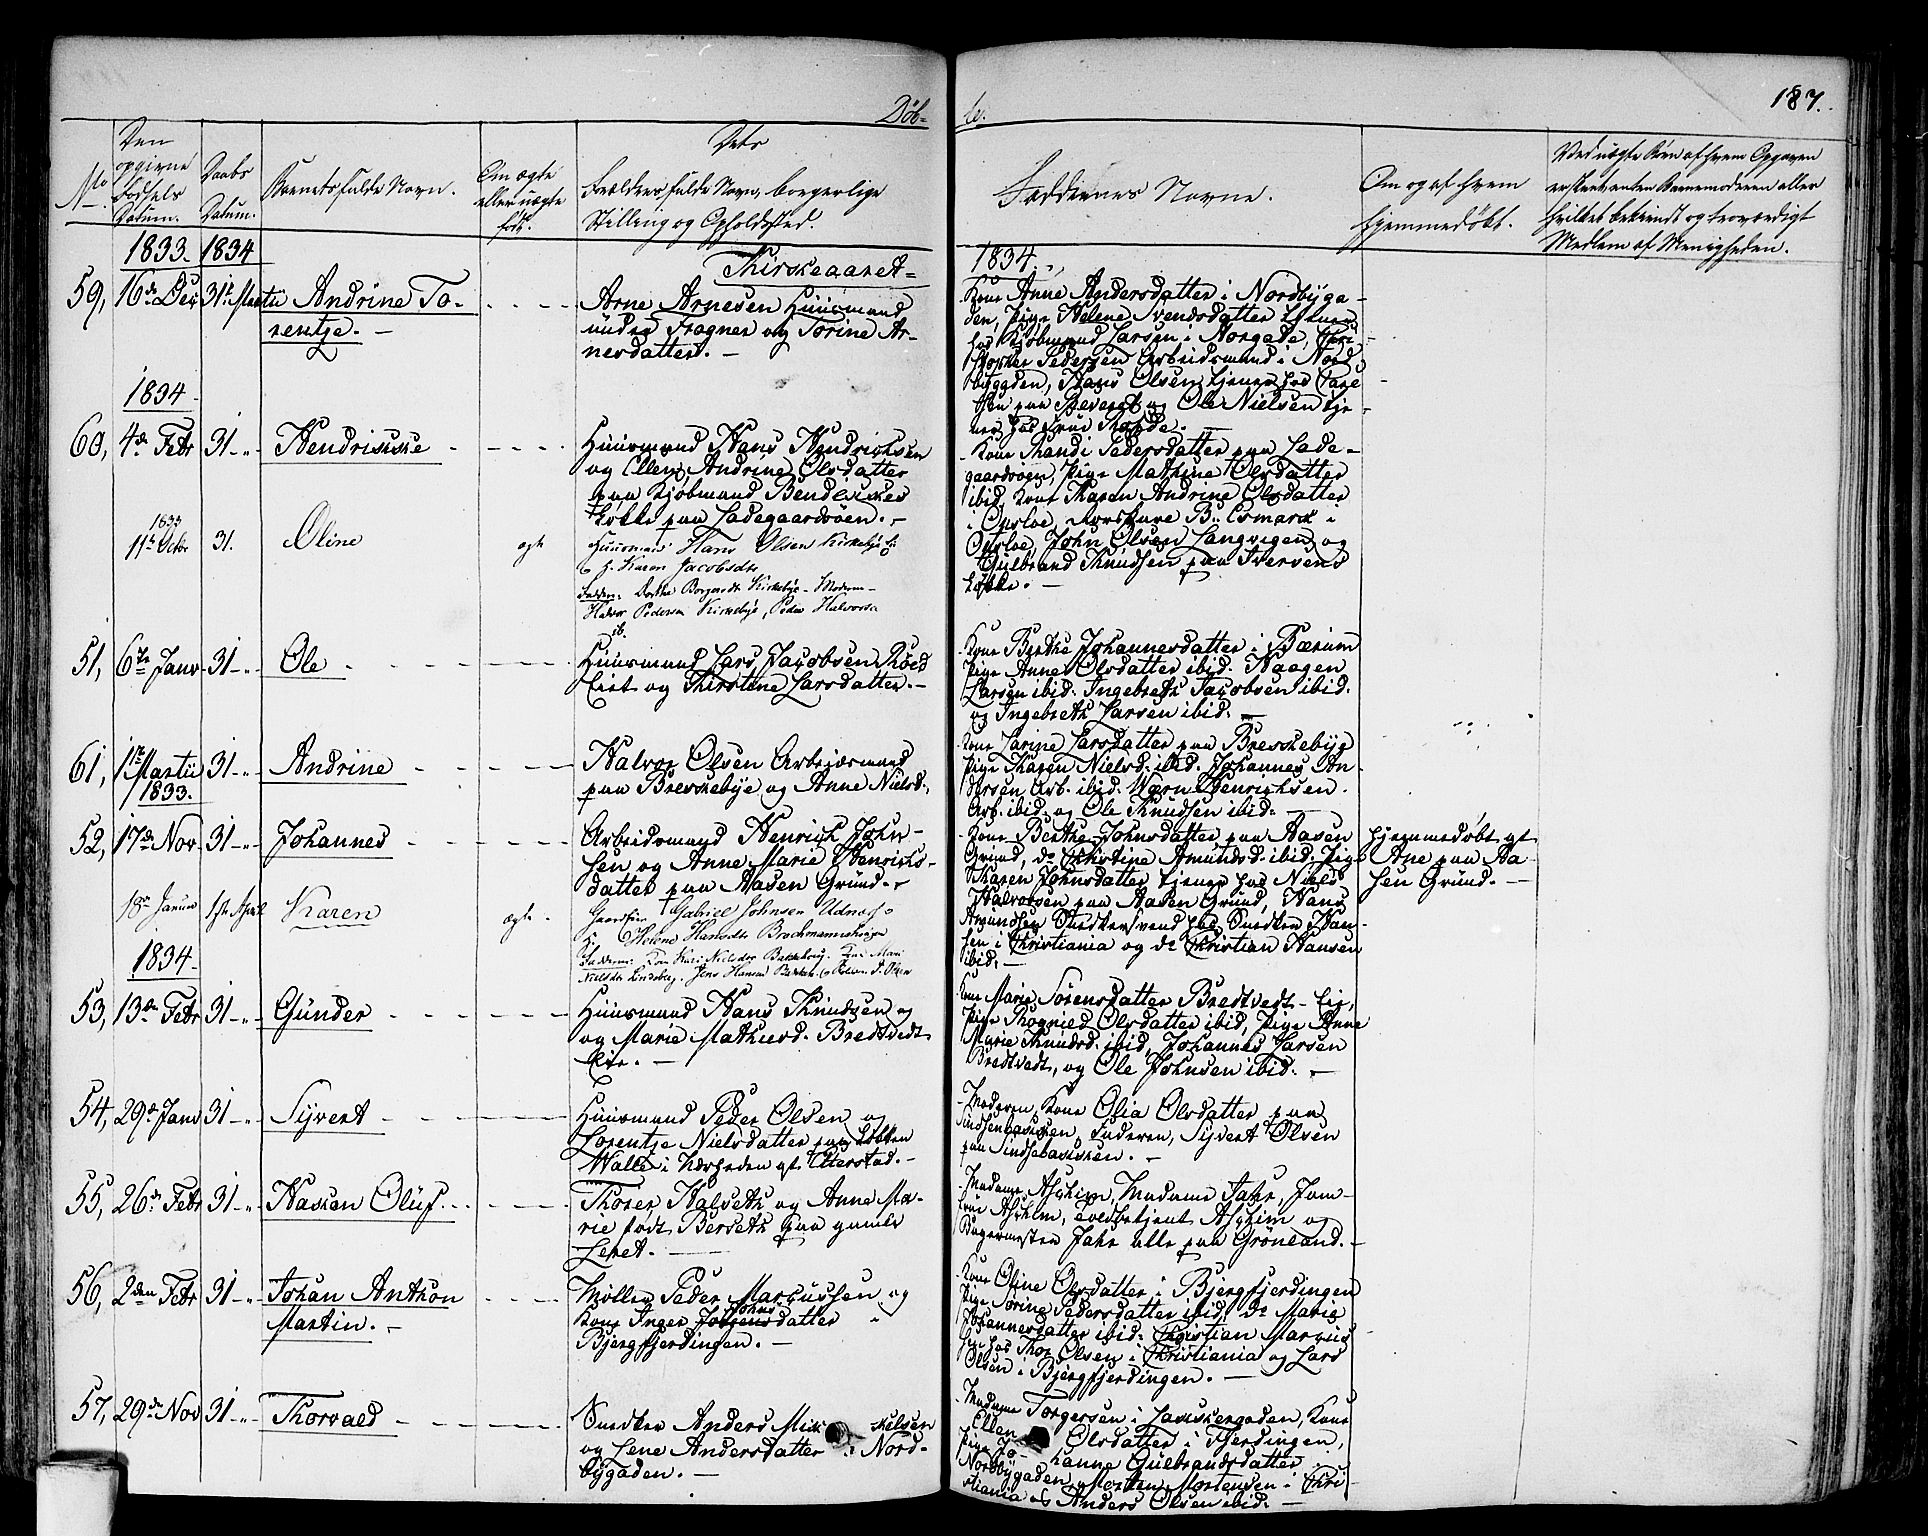 Døb-
de.
187.
No
Den
opgivne
Fødsels
Datum.
Daabs
Datum.
Barnets fulde Navn.
Om ægte
eller uægte
født.
Dets
Forældres fulde Navn, borgerlige
Stilling og Opholdssted.
Faddernes Navne.
Om og af hvem
hjemmedøbt.
Ved uægte Børn af hvem Opgaven
erholdt, enten Barnemoderen eller
hvilket bekiendt og troværdigt
Medlem af Menigheden.
1833. 1834
59, 16de Dec 31te Martii Andrine To-
rentje. -
Arne Arnesen Huusmand
under Frogner og Torine Ar-
nesdatter. -
1834.
Kone Anne Andersdatter i Nordbyga-
den, Pige Helene Svendsdatter tjener
hos Kjøbmand Larsen i Norgade, Chri-
stopher Pedersen Arbeidsmand i Nord
byggden, Hans Olsen tjener hos
paa og Ole Nielsen tje-
ner hos Frue
1834
60, 4de Febr 31 -"- Hendrikke
Huusmand Hans Hendrichsen
og Ellen Andrine Olsdatter
paa Kjøbmand Bendekes
Løkke paa Ladegaardsøen. -
Kone Randi Pedersdatter paa Lade-
gaardsøen, Pige Mathine Olsdatter
ibid, Kone Karen Andrine Olsdatter
i Opsloe, B. Esmark i
Opsloe, John Olsen Langvigen og
Gulbrand Knudsen paa Iversens
Løkke. -
1833
11te Octbr 31. Oline ægte
Huusmand Hans Olsen Kirkebye E:
& H. Karen Jacobsdtr
Faddere: Dorthe Borgersdtr Kirkebye - Moderen -
Halvor Pedersen Kirkebye, Peder Halvorsen
ib.
51, 6te Janv 31 -"- Ole
Huusmand Lars Jacobsen Røed
Eiet og Kirstine Larsdatter. -
Kone Berthe Johannesdatter i Bærum
Pige Anne Olsdatter ibid. Haagen
Larsen ibid. Ingebreth Jacobsen ibid.
og Ingebreth Larsen ibid. -
61, 1te Martii 31 -"- Andrine
Halvor Olsen Arbeidsmand
paa Breskebye og Anne Nielsd.
Kone Larine Larsdatter paa Breskebye
Pige Karen Nielsd. ibid. Johannes An-
dersen Arb. ibid. Henrichsen
Arb. ibid. og Ole Knudsen ibid. -
1833.
52, 17de Nov 31 -"- Johannes
Arbeidsmand Henrich John-
sen og Anne Marie Henrichs-
datter paa Aasen Grund. -
Kone Berthe Johnsdatter paa Aasen
Grund, do Christine Amundsd. ibid. Pige
Karen Johnsdatter tjener hos Niels
Halvorsen paa Aasen Grund, Hans
Amundsen Snedkersvend hos Snedker Han-
sen i Christiania og do Christian Hansen
ibid. -
hjemmedøbt af
Ane paa Aa-
sen Grund. -
18de Januar 1ste April Karen ægte.
Gaardbr. Gabriel Johnsen Udnæs
H. Helene Hansdtr Brochmannshougen
Faddere: Kone Kari Nielsdtr Bakkehoug. Kone Mari
Nielsdtr Lindeberg. Jens Hansen Bakken
1834
53, 13de Febr 31 -"- Gunder
Huusmand Hans Knudsen og
og Marie Mathisd. Bredtvedt
Eie. -
Kone Marie Sørensdatter Bredtvedt-Eie,
Pige Rognied Olsdatter ibid, Pige Anne
Marie Knudsd. ibid, Johannes Larsen
Bredtvedt, og Ole Johnsen ibid. -
54, 29de Janv 31 -"- Syvert
Huusmand Peder Olsen og
Lorentje Nielsdatter paa Løkken
Walle i Nærheden af Etterstad. -
Moderen, Kone Olia Olsdatter paa
Sindsenbakken, Faderen, Syvert Olsen
paa Sindsebakken. -
55, 26de Febr 31 -"- Haaken Oluf
Thorer Halseth og Anne Ma-
rie født Berseth paa gamle
Leret. -
Madame Aschim, Madame Jahr, Jom-
frue Aschim, Toldbetjent Aschim og
Bagermester Jahr alle paa Grönland. -
56, 2den Febr 31 -"- Johan Anthon
Martin. -
Møller Peder Marcussen og
Kone Inger Johnsdatter
Bjergfjerdingen. -
Kone Oline Olsdatter i Bjergfjerdingen
Pige Sørine Pedersdatter ibid, do Marie
Johannesdatter ibid. Christian Marcus-
sen hos Thor Olsen i Christiania og Lars
Olsen i Bjergfjerdingen. -
57, 29de Nov 31 -"- Thorvald
Snedker Anders Mikkelsen
og Lene Andersdatter i Nord-
bygaden. -
Madame Torgersen i Lakkergaden, Kone
Ellen Olsdatter i Fjerdingen,
Pige Johanne Gulbrandsdatter i
Nordbygaden, Morten Mortensen i Chri-
stiania og Anders Olsen ibid. -